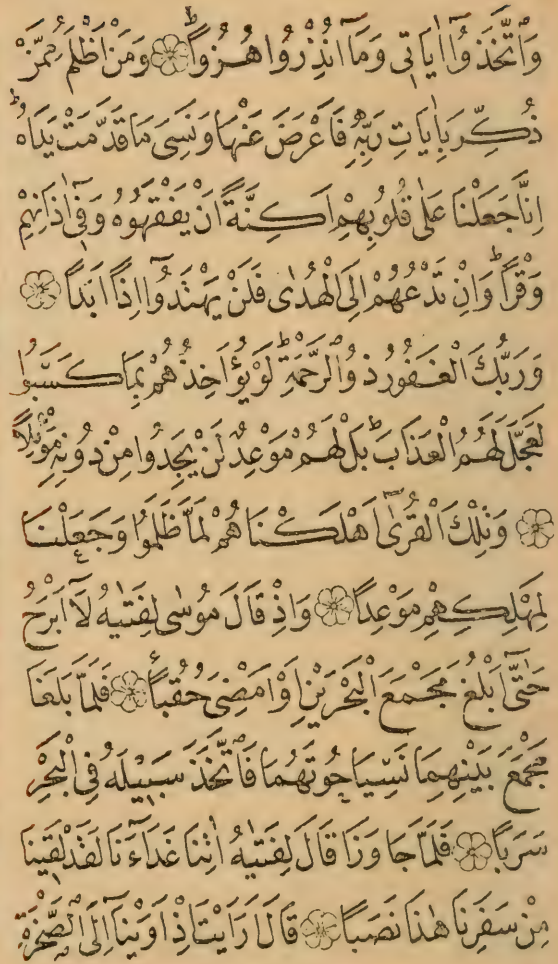 وَاتَّخَذُٓوا اٰيَاتٖى وَمَٓا اُنْذِرُوا هُزُواً ۞ وَمَنْ اَظْلَمُ مِمَّنْ
ذُكِّرَ بِاٰيَاتِ رَبِّهٖ فَاَعْرَضَ عَنْهَا وَنَسِىَ مَا قَدَّمَتْ يَدَاهُ ط
اِنَّا جَعَلْنَا عَلٰى قُلُوبِهِمْ اَكِنَّةً اَنْ يَفْقَهُوهُ وَفٖٓى اٰذَانِهِمْ
وَقْراً ط وَاِنْ تَدْعُهُمْ اِلَى الْهُدٰى فَلَنْ يَهْتَدُٓوا اِذاً اَبَداً ۞
وَرَبُّكَ الْغَفُورُ ذُو الرَّحْمَةِ ط لَوْ يُؤَاخِذُهُمْ بِمَا كَسَبُوا
لَعَجَّلَ لَهُمُ الْعَذَابَ ط بَلْ لَهُمْ مَوْعِدٌ لَنْ يَجِدُوا مِنْ دُونِهٖ مَوْئِلاً
۞ وَتِلْكَ الْقُرٰٓى اَهْلَكْنَاهُمْ لَمَّا ظَلَمُوا وَجَعَلْنَا
لِمَهْلِكِهِمْ مَوْعِداً ۞ وَاِذْ قَالَ مُوسٰى لِفَتٰيهُ لَٓا اَبْرَحُ
حَتّٰٓى اَبْلُغَ مَجْمَعَ الْبَحْرَيْنِ اَوْ اَمْضِىَ حُقُباً ۞ فَلَمَّا بَلَغَا
مَجْمَعَ بَيْنِهِمَا نَسِيَا حُوتَهُمَا فَاتَّخَذَ سَبٖيلَهُ فِى الْبَحْرِ
سَرَباً ۞ فَلَمَّا جَاوَزَا قَالَ لِفَتٰيهُ اٰتِنَا غَدَٓاءَنَا لَقَدْ لَقٖينَا
مِنْ سَفَرِنَا هٰذَا نَصَباً ۞ قَالَ اَرَاَيْتَ اِذْ اَوَيْنَٓا اِلَى الصَّخْرَةِ